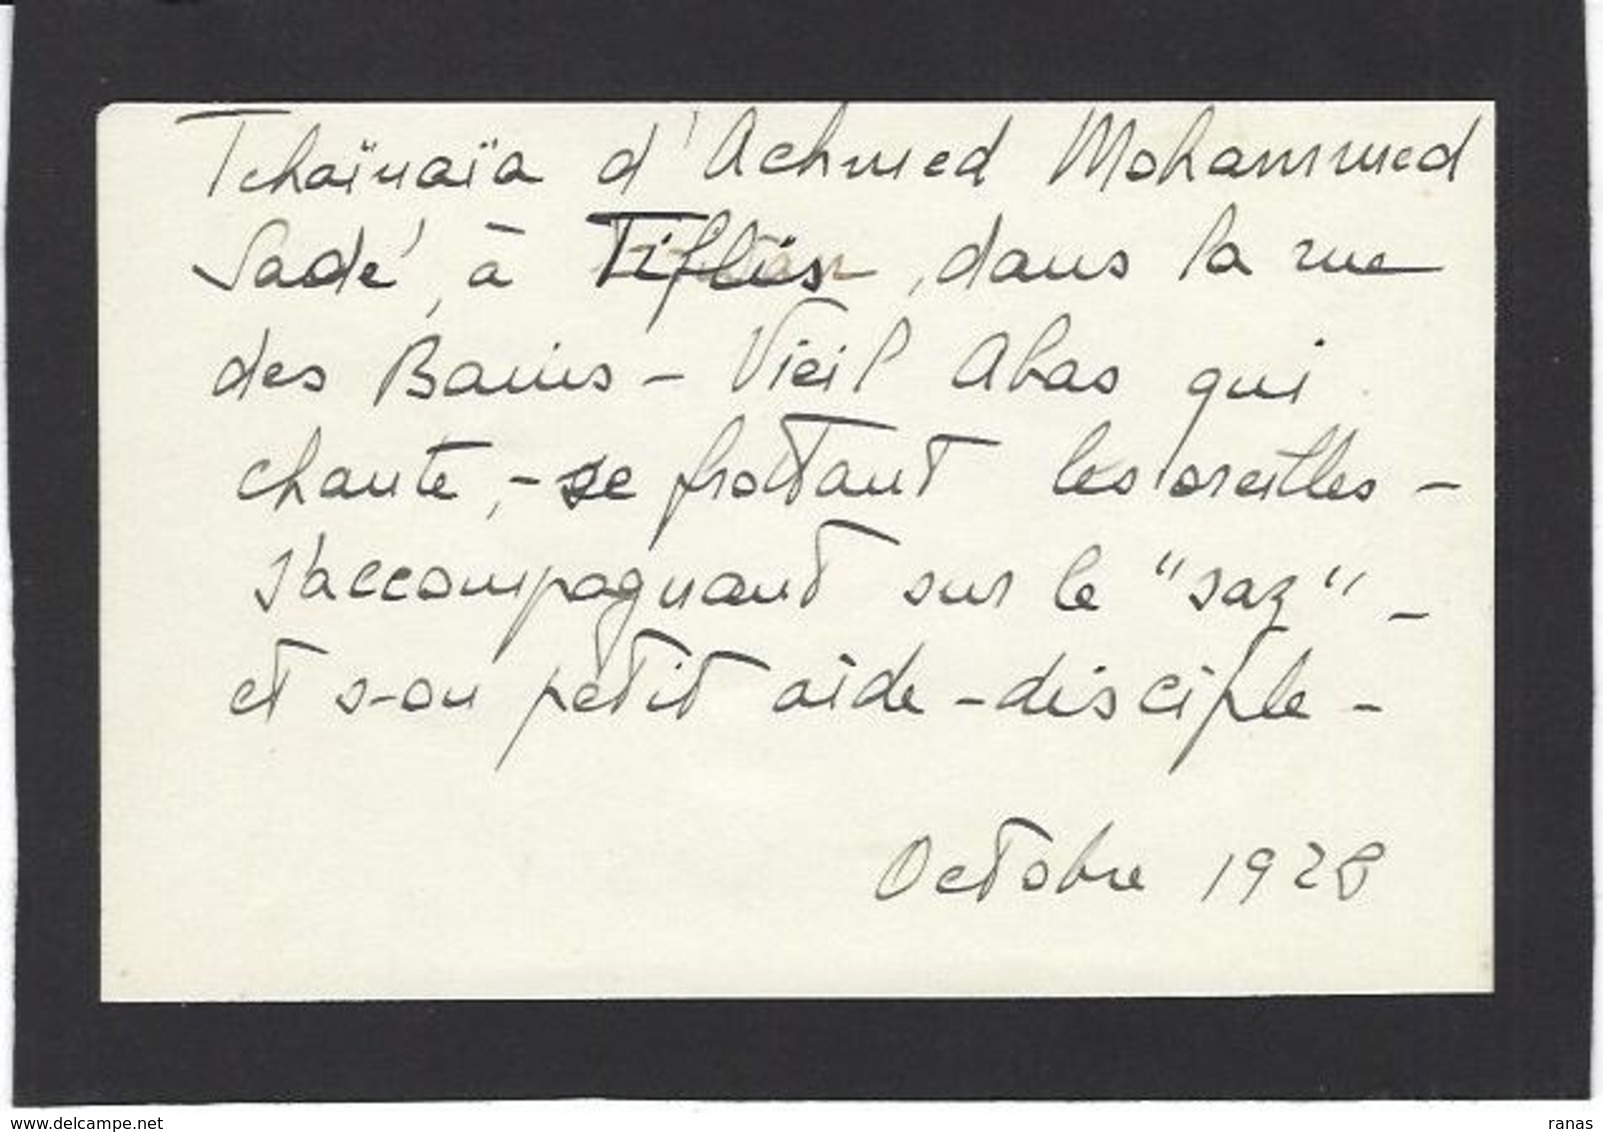 Tchaïnaïa d'Achmed Mohammed
Sadé, à Tiflis, dans la rue
des Bains - Vieil Abas qui
chante, - se frottant les oreilles -
s'accompagnant sur le "saz" -
et s-on petit aide-disciple -
Octobre 1928
www.delcampe.net
ranas